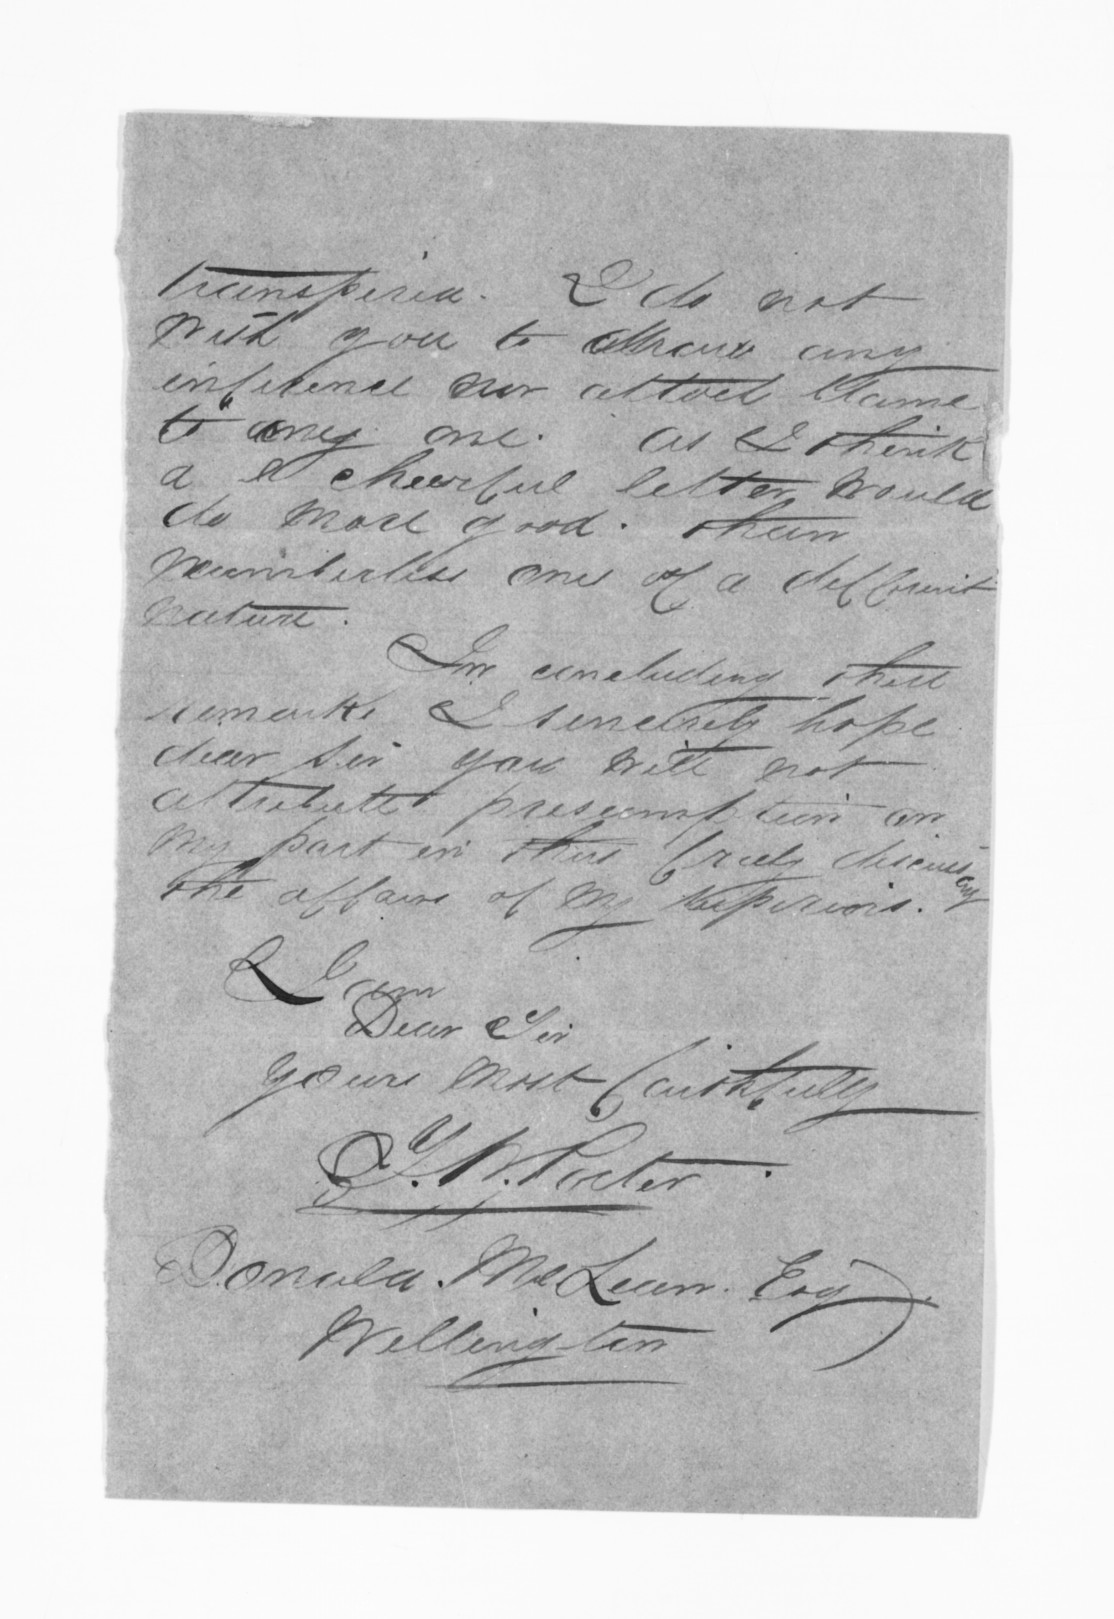 transpired. I do not
wish you to draw any
inference nor attach blame
to any one. as I think
a cheerful letter would
do more good. than
numberless ones of a different
nature.
In concluding these
remarks I sincerely hope
dear Sir you will not
attribute presumption on
my part in thus freely discussing
the affairs of my superiors.
I am
Dear Sir
Yours most faithfully
T. W. Porter.
Donald. McLean. Esq
Wellington